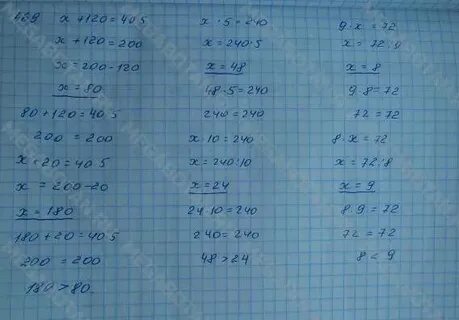 129
x + 120 = 40·5
x + 120 = 200
x = 200 - 120
x = 80
80 + 120 = 40·5
200 = 200
x + 20 = 40·5
x = 200 - 20
x = 180
180 + 20 = 40·5
200 = 200
180 > 80
x · 5 = 240
x = 240 : 5
x = 48
48 · 5 = 240
240 = 240
x · 10 = 240
x = 240 : 10
x = 24
24 · 10 = 240
240 = 240
48 > 24
9 · x = 72
x = 72 : 9
x = 8
9 · 8 = 72
72 = 72
8 · x = 72
x = 72 : 8
x = 9
8 · 9 = 72
72 = 72
8 < 9